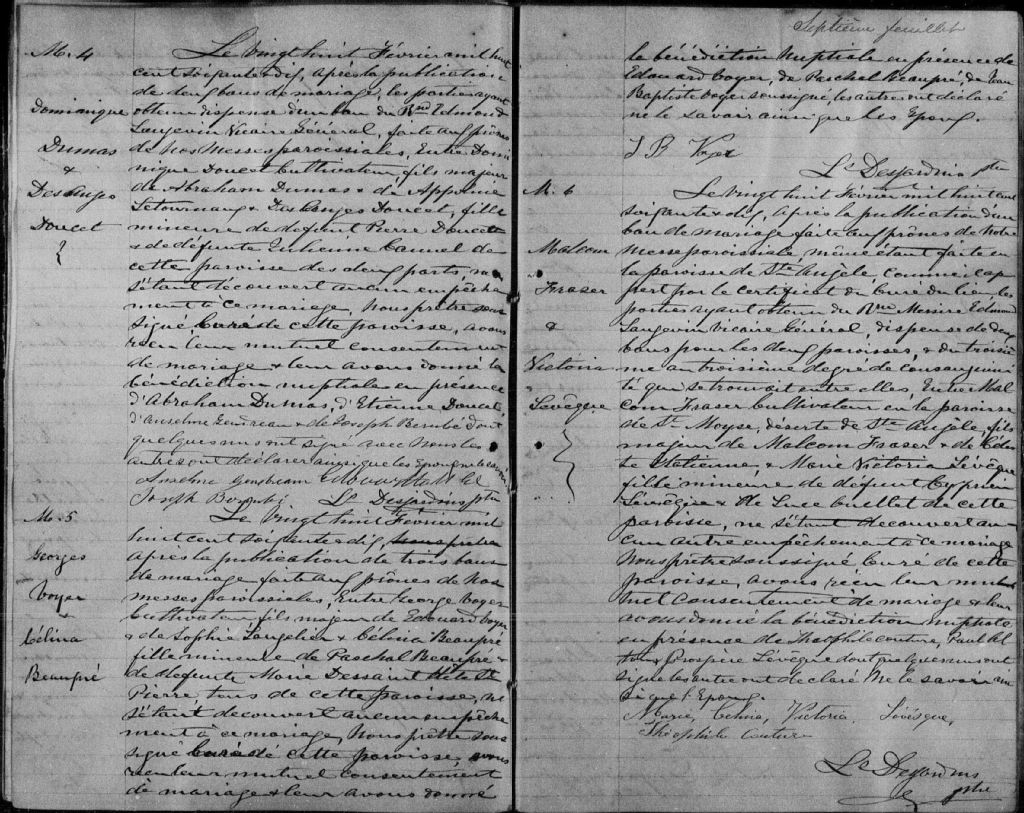 M. 4
Dominique
Dumas
&
Des Anges
Doucet
Le vingt huit Février mil huit
cent soixante & dix, après la publication
de deux bans de mariage, les parties ayant
obtenu dispense d'un ban du Rvd Edmond
Langevin Vicaire Général, faite aux prônes
de Nos Messes paroissiales, Entre Domi
nique Doucet Cultivateur, fils majeur
de Abraham Dumas & de Appoline
Letourneau & Des Anges Doucet, fille
mineure de défunt Pierre Doucet
& de défunte Julienne Cannel de
cette paroisse des deux parts, ne
s'étant découvert aucun empêche
ment à ce mariage, Nous prêtre sous
signé, Curé de cette paroisse, avons
reçu leur mutuel consentement
de mariage & leur avons donné la
bénédiction nuptiale en présence
d'Abraham Dumas, d'Etienne Doucet,
d'Anselme Gendreau & de Joseph Berubé dont
quelques uns ont signé avec Nous les
autres ont déclarer ainsi que les Epoux ne le savoir
Anselme Gendreau
Joseph Berubé Ls Desjardins ptre
M. 5
Georges
Voyer
&
Célina
Beaupré
Le vingt huit Février mil
huit cent soixante & dix
après la publication de trois bans
de mariage fait aux prônes de Nos
messes paroissiales, Entre George Voyer
Cultivateur, fils majeur de Edouard Voyer
& de Sophie Langelier & Célina Beaupré
fille mineure de Paschal Beaupré &
de défunte Marie Dessaint dite St
Pierre tous de cette paroisse, ne
s'étant découvert aucun empêche
ment à ce mariage, Nous prêtre sous
signé Curé de cette paroisse, avons
reçu leur mutuel consentement
de mariage & leur avons donné
Septième feuillet
la bénédiction nuptiale en présence de
Edouard Voyer, de Paschal Beaupré, de Jean
Baptiste Voyer soussigné, les autres ont déclaré
ne le savoir ainsi que les Epoux.
J B Voyer
Ls Desjardins ptre
M. 6
Malcom
Fraser
&
Victoria
Levêque
Le vingt huit Février mil huit cent
soixante & dix, après la publication d'un
ban de mariage faite aux prônes de Notre
Messe paroissiale, même étant faite en
la paroisse de Ste Angèle, comme il ap
pert par le certificat du Curé du lieu, les
parties ayant obtenu du Rvd Messire Edmond
Langevin Vicaire Général, dispense de deux
bans pour les deux paroisses, & du troisiè
me au troisième degré de consanguini
té qui se trouvoit entre elles, Entre Mal
com Fraser Cultivateur en la paroisse
de St Moyse, déserte de Ste Angèle, fils
majeur de Malcom Fraser & de Céles
te Italienne & Marie Victoria Lévêque
fille mineure de défunt Cyprien
Lévêque & de Luce Ouellet de cette
paroisse, ne s'étant découvert au
cun autre empêchement à ce mariage
Nous prêtre soussigné Curé de cette
paroisse, avons reçu leur mu
tuel consentement de mariage & leur
avons donné la bénédiction nuptiale
en présence de Théophile Couture, Paul
Prospère Lévêque dont quelques uns ont
signé les autres ont déclaré Ne le savoir ain
si que l'Epoux.
Marie, Celina, Victoria, Lévésque,
Théophile Couture
Ls Desjardins
ptre